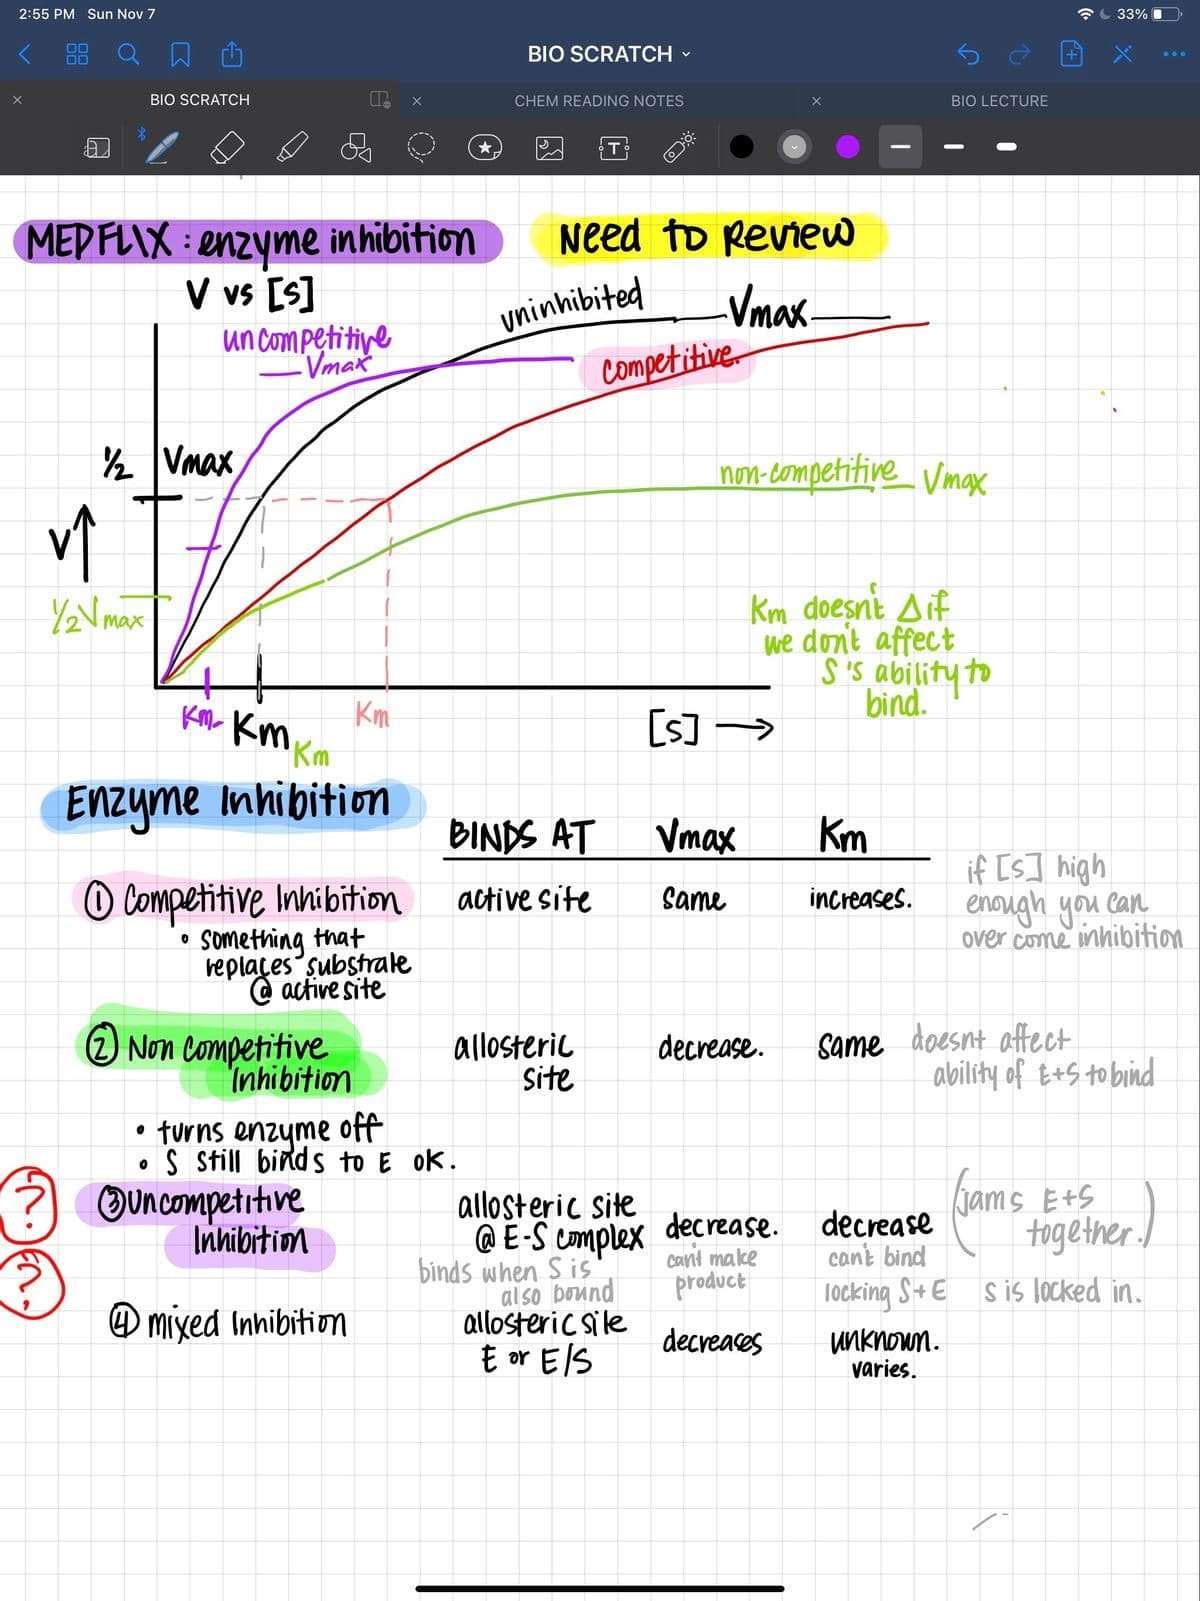 2:55 PM Sun Nov 7
33%
BIO SCRATCH
BIO SCRATCH
CHEM READING NOTES
BIO LECTURE
T
MEDFLIX : enzyme inhibition
Need to Review
V vs [S]
uninhibited
Vmax
uncompetitive
Vmax
competitive
1/2 Vmax
non-competitive Vmax
V↑
1/2 Vmax
Km doesn't Δ if
we don't affect
S's ability to
bind.
Km
Km
Km
Km
[S] →
Enzyme Inhibition
BINDS AT Vmax Km
① Competitive Inhibition active site same increases.
if [S] high
enough you can
over come inhibition
• something that
replaces substrate
@ active site
② Non Competitive
Inhibition
allosteric
site
decrease. same
doesnt affect
ability of E+S to bind
• turns enzyme off
• S still binds to E ok.
?
?
③ Uncompetitive
Inhibition
allosteric site
@ E-S complex
decrease. decrease
(jams E+S
together.)
binds when S is
also bound
can't make
product
can't bind
locking S+E S is locked in.
④ mixed Inhibition
allosteric site
E or E/S
decreases
unknown.
varies.